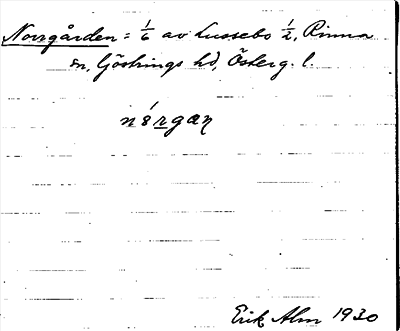 Norrgården = 1/6 av Lussebo 1/2, Rinna
sn, Göstrings hd, Österg. l.
nórgan
Erik Alm 1930